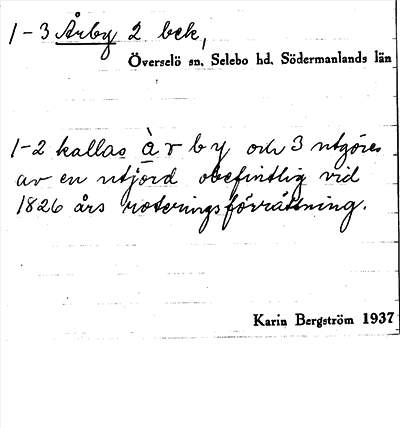 1-3 Årby 2 bek,
Överselö sn, Selebo hd, Södermanlands län
1-2 kallas à r b y och 3 utgöres
av en utjord obefintlig vid
1826 års roteringsförrättning.
Karin Bergström 1937